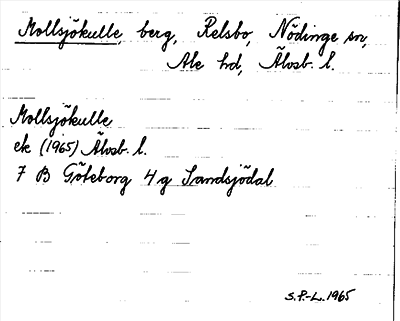 Mollsjökulle, berg, Relsbo, Nödinge sn,
Ale hd, Älvsb. l.
Mollsjökulle
ek (1965) Älvsb. l.
7 B Göteborg 4g Sandsjödal
S.P.-L. 1965